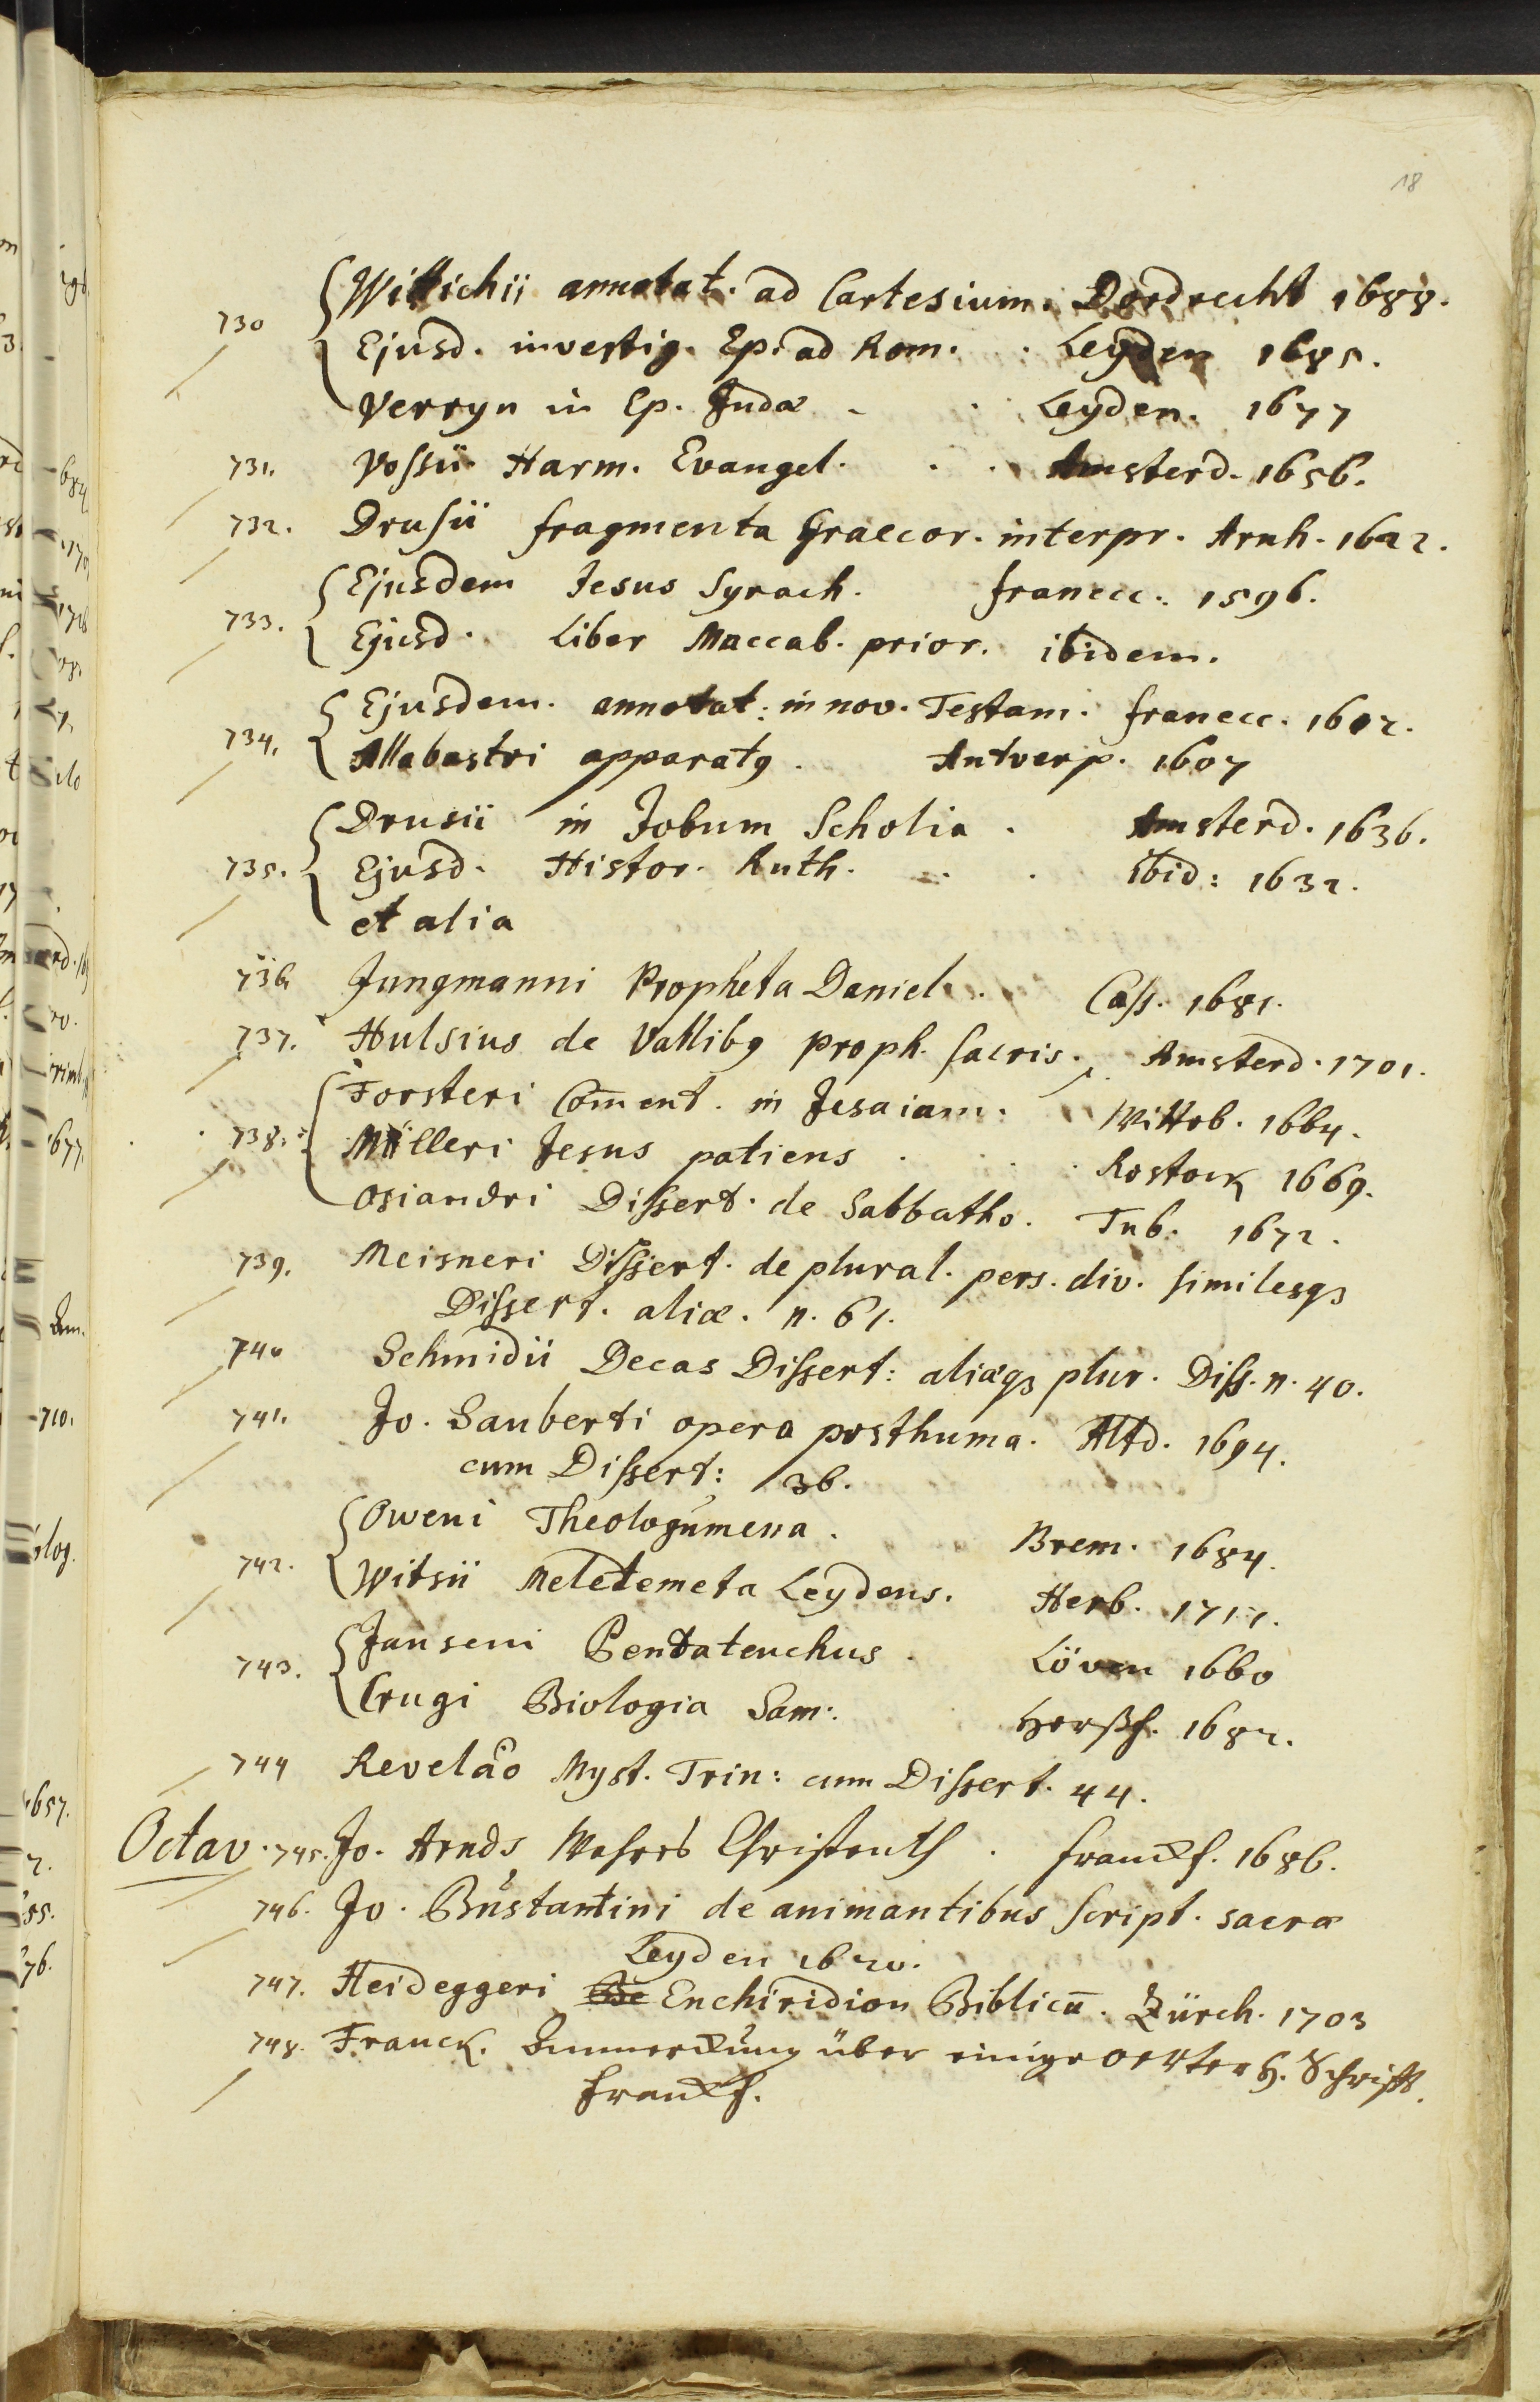 18
730 Wittichii annotat. ad Cartesium. Dordrecht 1688.
Ejusd. investig. Ep. ad Rom. . Leyden 1685.
Verryn in Ep. Judæ - . Leyden. 1677
731. Vossii Harm. Evangel. . . Amsterd. 1656.
732. Drusii fragmenta Graecor. interpr. Arnh. 1622.
733. Ejusdem Jesus Syrach. franecc: 1596.
Ejusd. Liber Maccab. prior. ibidem.
734. Ejusdem. annotat: in nov. Testam. franecc. 1612.
Allabastri apparatꝯ. Antverp. 1607
735. Drusii in Jobum Scholia. Amsterd. 1636.
Ejusd. Histor. Ruth. . . ibid: 1632.
et alia
736 Jungmanni Propheta Daniel. . Cass. 1681.
737. Hulsius de Vallibꝯ proph. sacris. Amsterd. 1701.
738. Forsteri Com̄ent. in Jesaiam. Witteb. 1664.
Mülleri Jesus patiens . . Rostock 1669.
Osiandri Dissert. de Sabbatho. Tub. 1672.
739. Meisneri Dissert. de plural. pers. div. similesqꝫ
Dissert. aliæ. n. 61.
740 Schmidii Decas Dissert: aliæqꝫ plur. Diss. n. 40.
741. Jo. Sauberti opera posthuma. Altd. 1694.
cum Dissert: 36.
742. Oweni Theologumena. Brem. 1684.
Witsii Meletemeta Leydens. Herb. 1717.
743. Janseni Pentateuchus. Löven 1660
Crugi Biologia Sam:. Herßf. 1682.
744 Revelao͂ Myst. Trin: cum Dissert. 44.
Octav. 745. Jo. Arnds Wahres Christenth . franckf. 1686.
746. Jo. Bustantini de animantibus script. sacræ
Leyden 1620.
747. Heideggeri Be Enchiridion Biblicū. Zürch. 1703
748. Franck. Anmerckung über einige oerter H. Schrifft.
franckf.